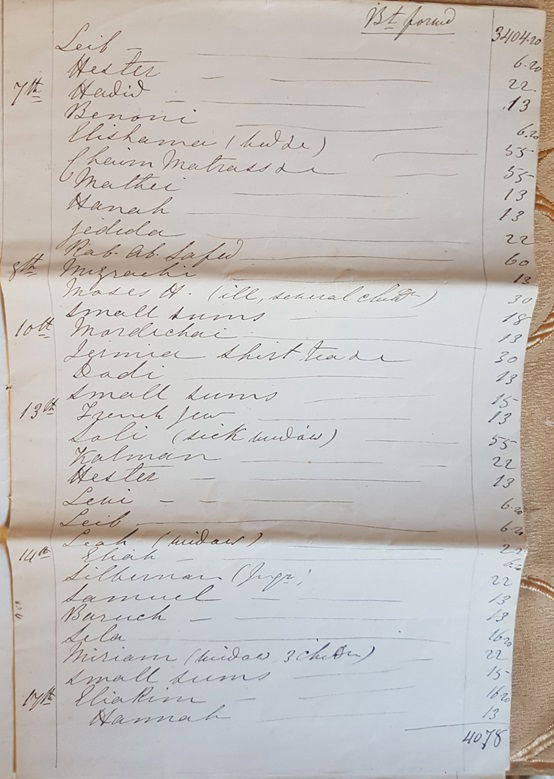 Bt forwd 3404.20
Leib 6.20
Hester 22
7th Hadid 13
Benoni 6.20
Elishama (trade) 55
Chaim Matrassde 55
Mathei 13
Hanah 13
Jedida 22
Rab. Ab. Safed 60
8th Mizrachi 13
Moses H. (ill, several childn) 30
Small sums 18
10th Mordichai 13
Jermia shirt trade 30
Dodi 13
Small sums 15
13th French Jew 13
Soli (sick widow) 55
Kalman 22
Hester 13
Levi 6.20
Leib 6.20
14th Leah (widow)
Eliah
Silberman 22
Samuel 13
Baruch 13
Sila 16.20
Miriam (widow 3 childn) 22
Small sums 15
17th Eliakim 16.20
Hannah 13
4078